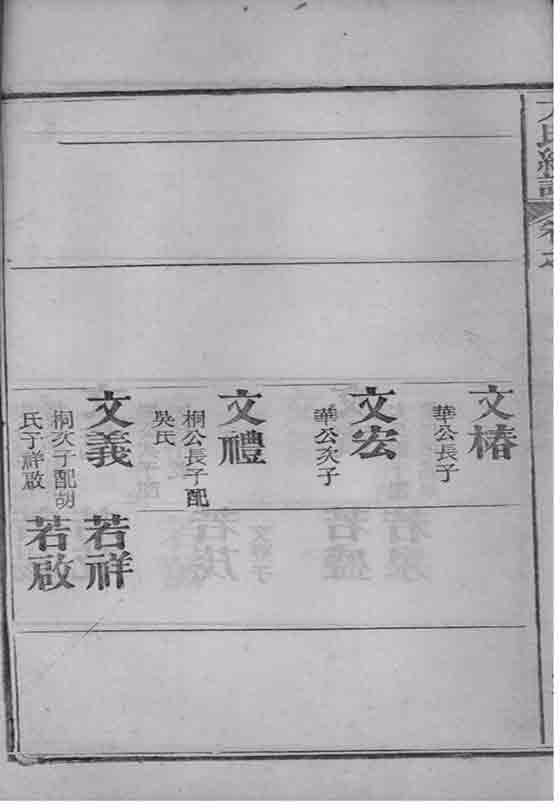 文椿
華公長子
文宏
華公次子
文禮
桐公長子配
吳氏
文義
桐次子配胡
氏子祥啟
若祥
若啟